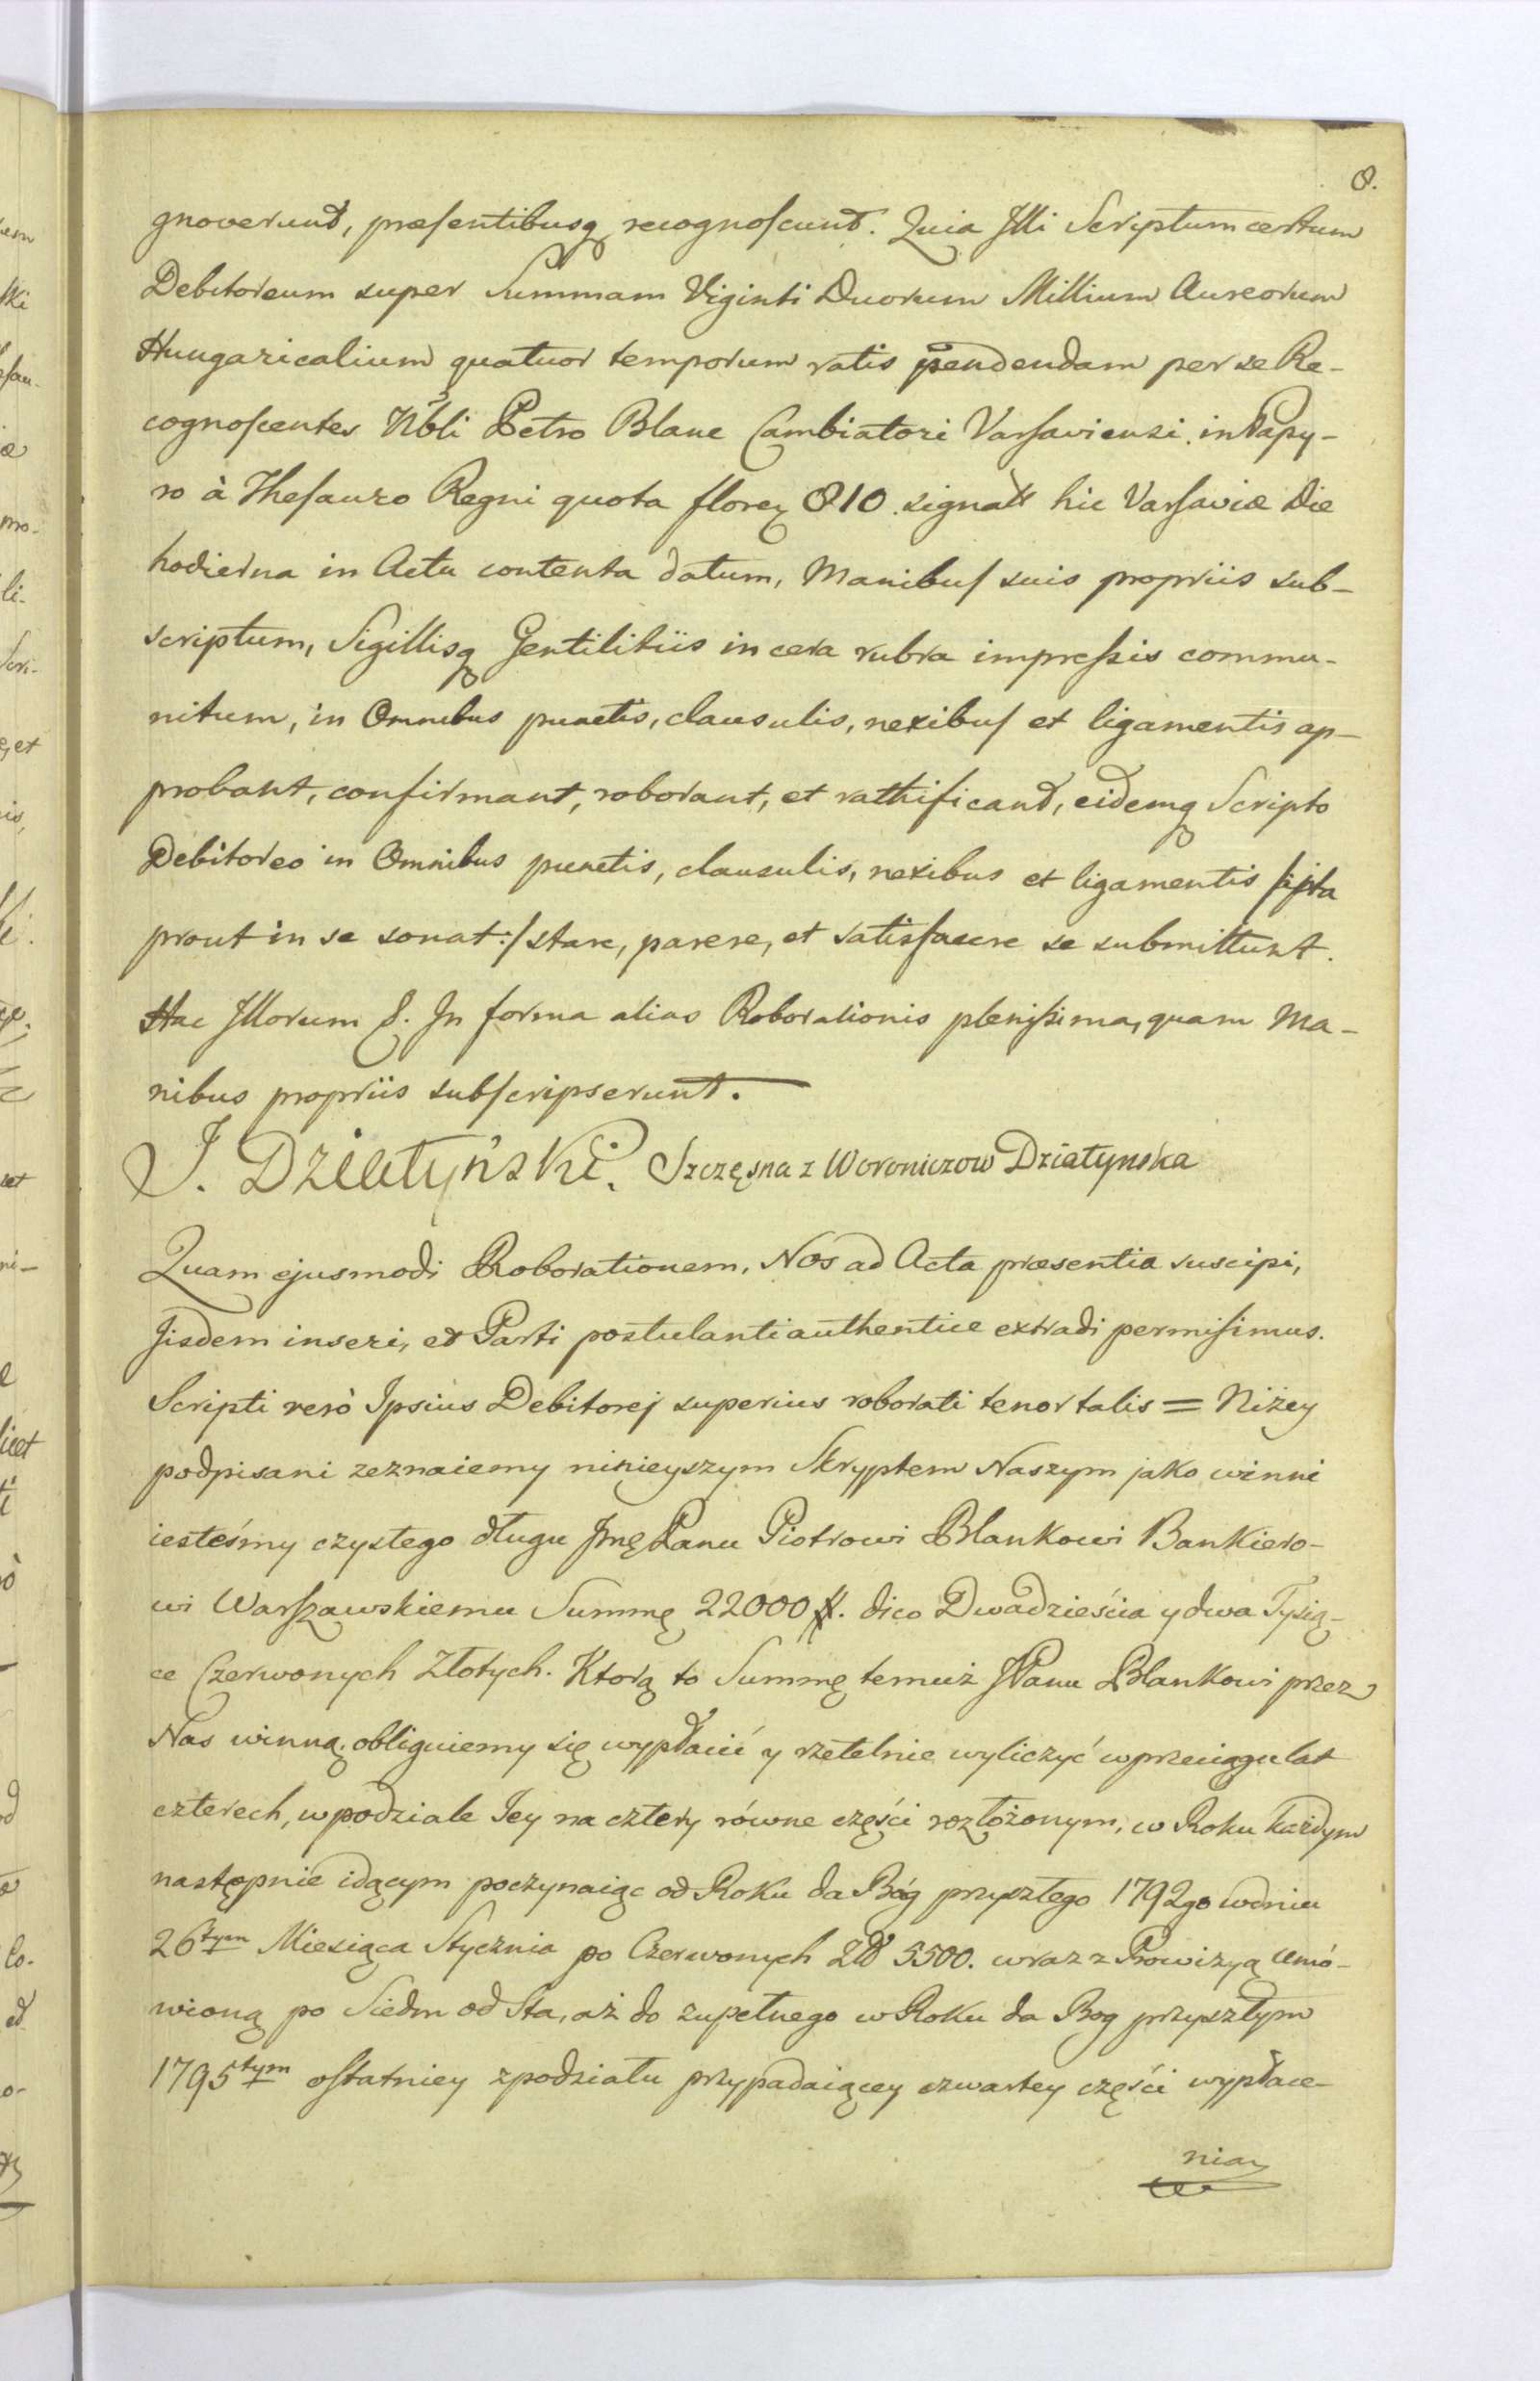 8.
gnoverunt, præsentibusq recognoscunt. Quia Illi Scriptum certum
Debitoreum super Summam Viginti Duorum Millium Aureorum
Hungaricalium quatuor temporum ratis pendendam per se Re-
cognoscentes Nbli Petro Blanc Cambiatori Varsaviensi. in Papy-
ro à Thesauro Regni quota floreq 810. signatt hic Varsaviæ Die
hodierna in Actu contenta datum, Manibus suis propriis sub-
scriptum, Sigillisq Gentilitiis in cera rubra impressis commu-
nitum, in Omnibus punctis, clausulis, nexibus et ligamentis ap-
probant, confirmant, roborant, et rathificant, eidemq Scripto
Debitoreo in Omnibus punctis, clausulis, nexibus et ligamentis
prout in se sonat:/ stare, parere, et satisfacere se submittunt.
Hac Illorum &. In forma alias Roborationis plenissima, quam Ma-
nibus propriis subscripserunt.
J. Działyński. Szczęsna z Woroniczow Działynska
Quam ejusmodi Roborationem, Nos ad Acta præsentia suscipi,
Iisdem inseri, et Parti postulanti authentice extradi permisimus.
Scripti verò Ipsius Debitorej superius roborati tenor talis = Niżey
podpisani zeznaiemy ninieyszym Skryptem Naszym jako winni
iesteśmy czystego długu Jmę Panu Piotrowi Blankowi Bankiero-
wi Warszawskiemu Summę 22000 #. dico Dwadzieścia y dwa Tysią-
ce Czerwonych Złotych. Ktorą to Summę temuż JPanu Blankowi przez
Nas winną, obliguiemy się wypłacić y rzetelnie wyliczyć w przeciągu lat
czterech, w podziale Jey na cztery równe części rozłożonym, w Roku każdym
następnie idącym poczynaiąc od Roku da Bóg przyszłego 1792go w dniu
26tym Miesiąca Stycznia po Czerwonych Zł 5500. wraz z Prowizyą umó-
wioną po Siedm od Sta, aż do zupełnego w Roku da Bog przyszłym
1795tym ostatniey z podziału przypadaiącey czwartey części wypłace-
nia